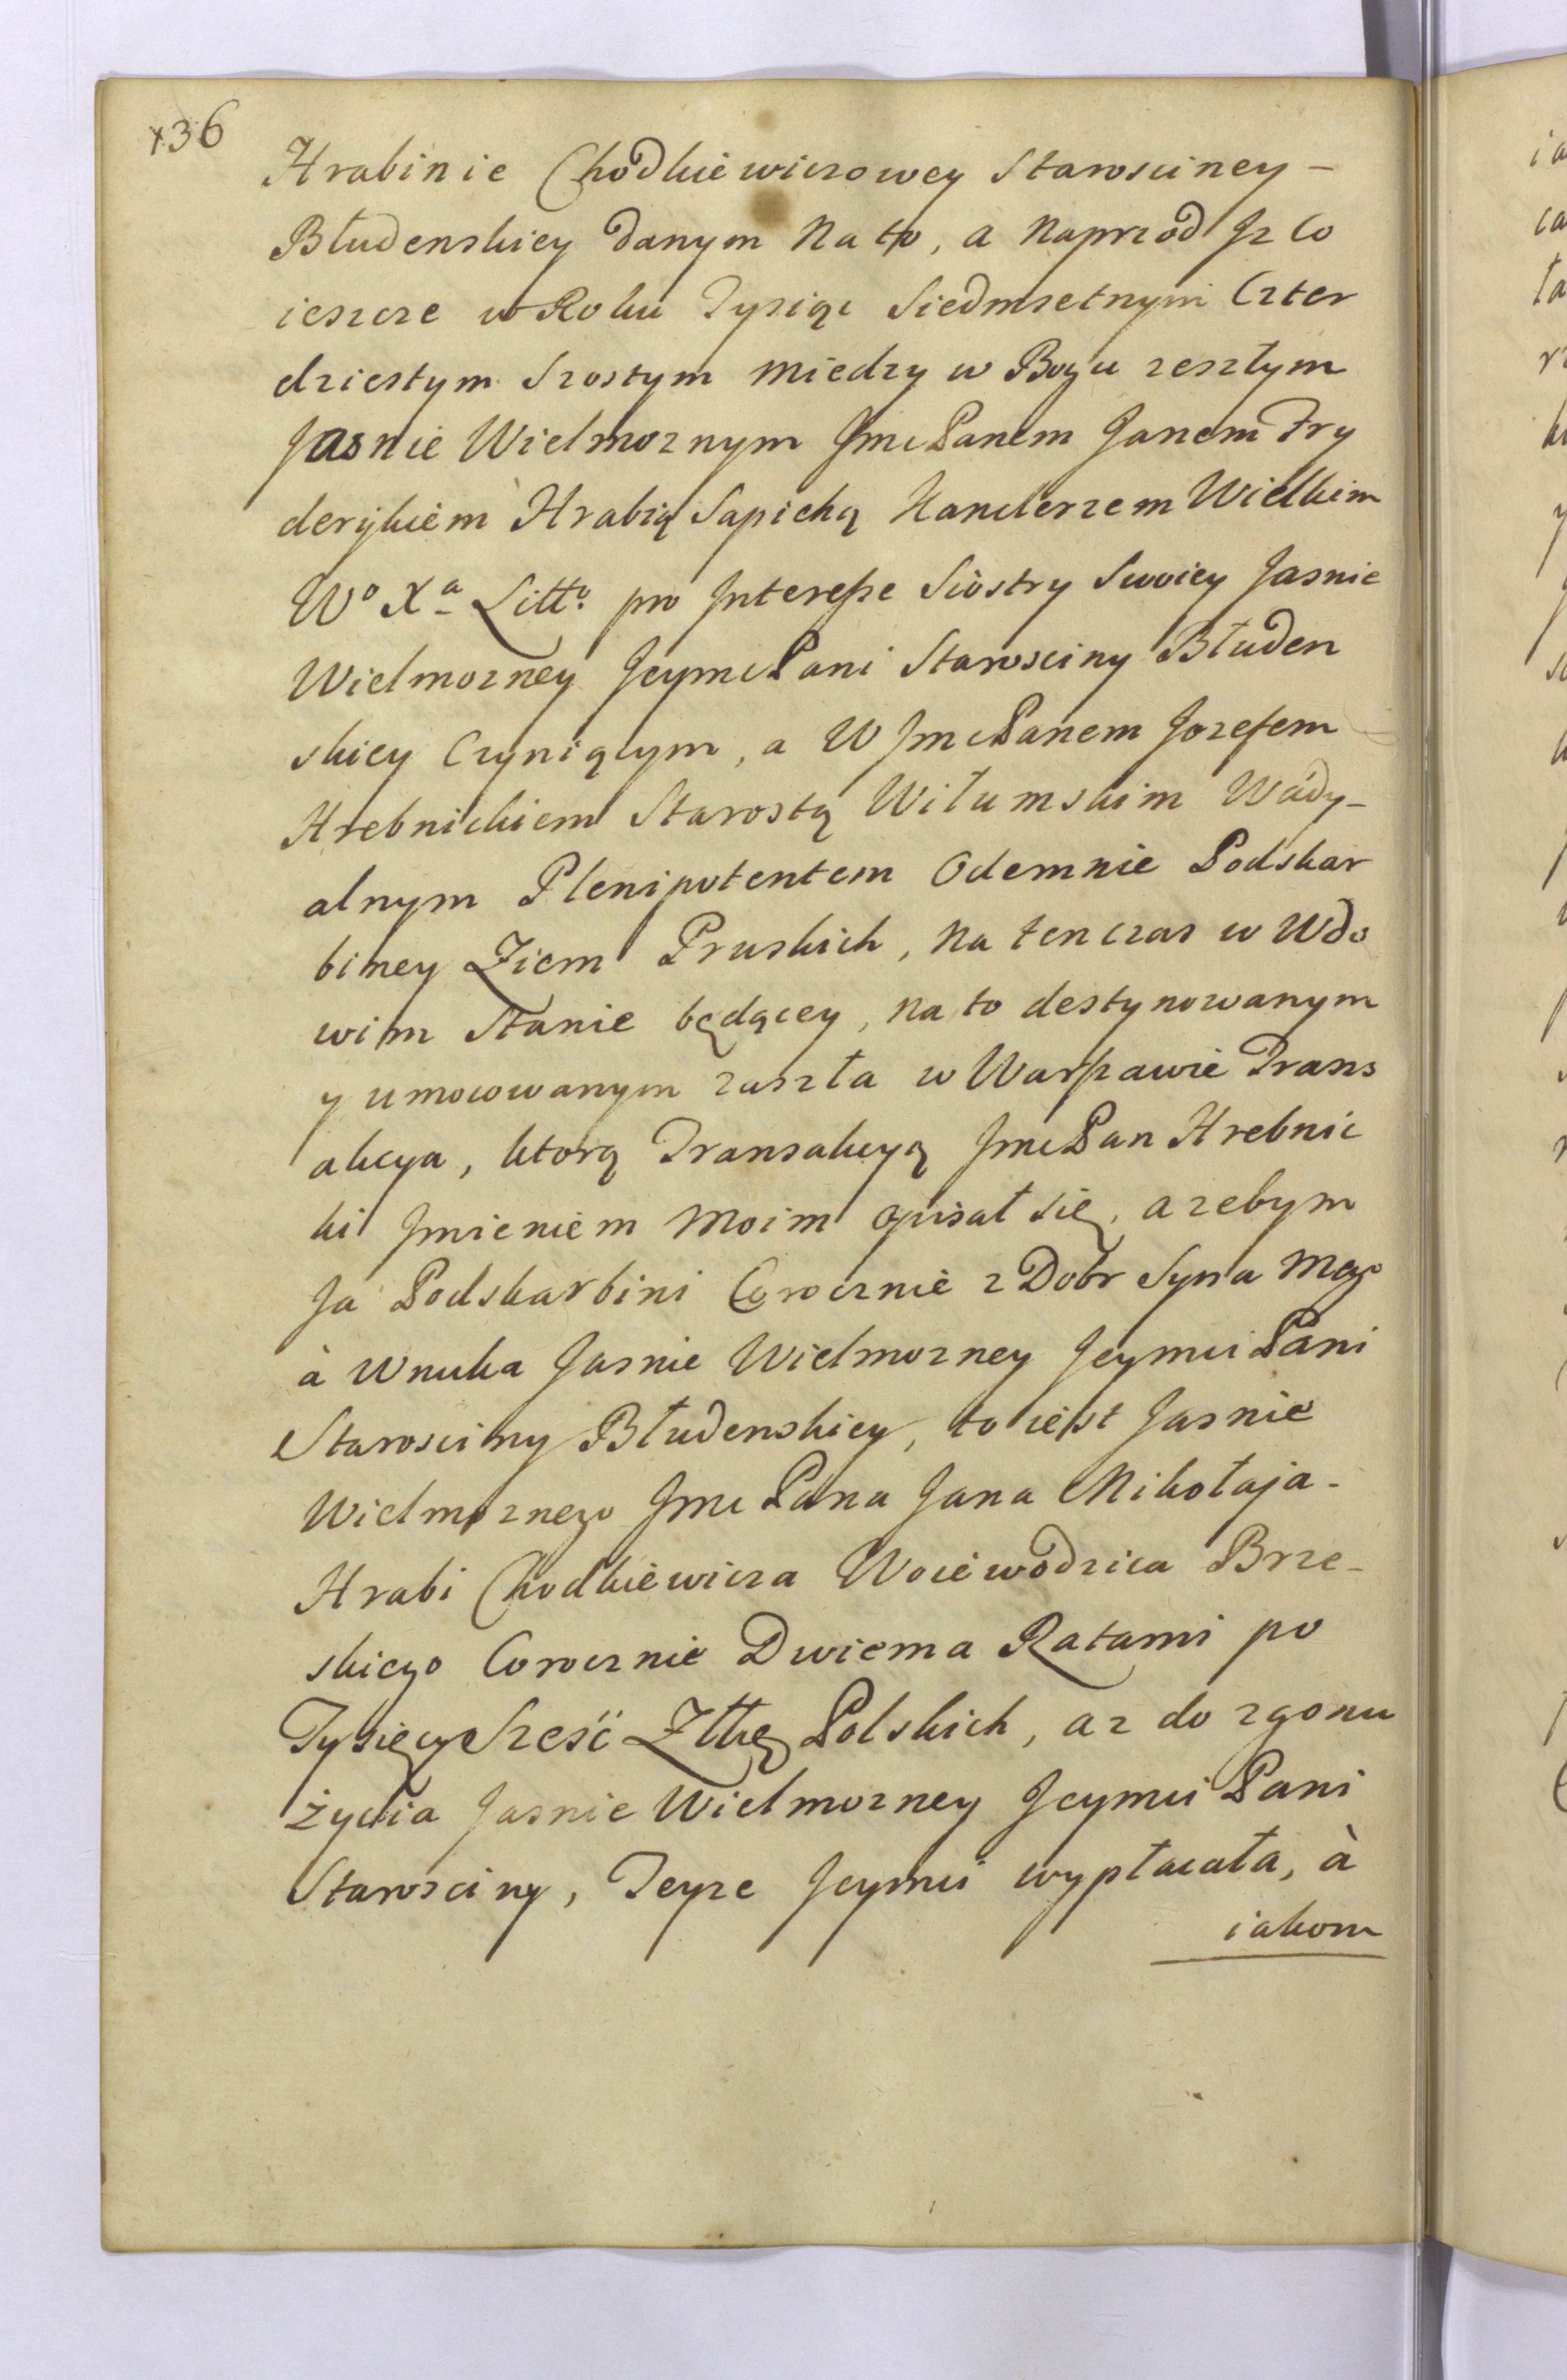 136
Hrabinie Chodkiewiczowey Starosciney –
Błudenskiey danym Na to, a Naprzod Jz Co
ieszcze w Roku Tysiąc Siedmsetnym Czter
dziestym Szostym Miedzy w Bogu zeszłym
Jasnie Wielmoznym Jmc Panem Janem Fry
derykiem Hrabią Sapiehą Kanclerzem Wielkim
Wo Xa Litto pro Interesse Siostry Swoiey Jasnie
Wielmozney Jeymc Pani Starosciny Błuden
skiey Czyniącym, a W Jmc Panem Jozefem
Hrebnickiem Starostą Wiłumskim Wády-
alnym Plenipotentem Odemnie Podskar
biney Ziem Pruskich, Na tenczas w Wdo
wim Stanie będącey, Na to destynowanym
y umocowanym zaszła w Warszawie Trans
akcya, ktorą Transakcyą Jmc Pan Hrebnic
ki Jmieniem Moim opisał się, azebym
Ja Podskarbini Corocznie z Dobr Syna Mego
à Wnuka Jasnie Wielmozney Jeymci Pani
Starosciny Błudenskiey, to iest Jasnie
Wielmoznego Jmc Pana Jana Mikołaja -
Hrabi Chodkiewicza Woiewodzica Brze-
skiego Corocznie Dwiema Ratami po
Tysięcy Szesć Złłę Polskich, az do zgonu
życia Jasnie Wielmozney Jeymci Pani
Starosciny, Teyze Jeymci wypłacała, à
iakom